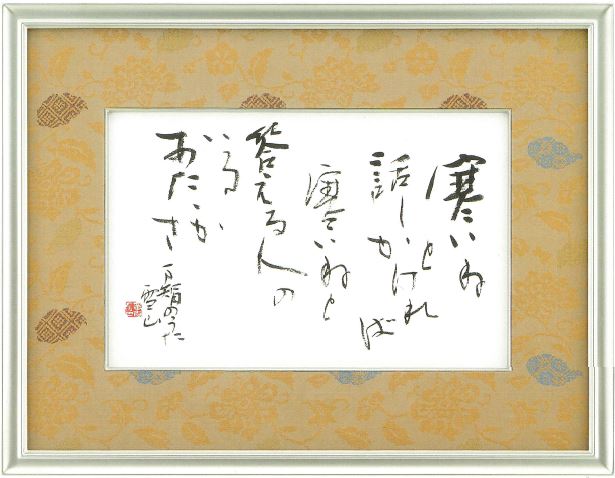 寒いね
と
話しかければ
寒いねと
答える人の
いる
あたゝかさ
万智のうた
雪山